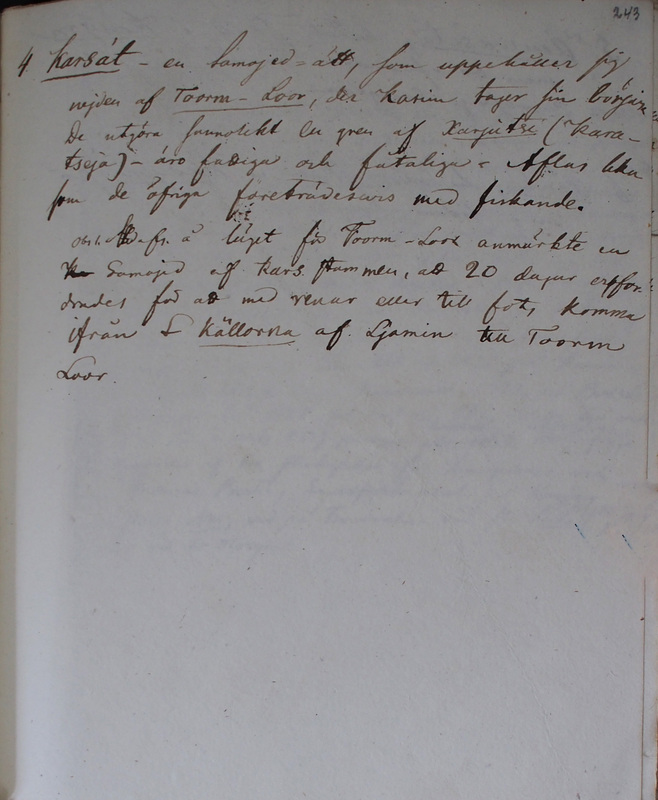 243
4 Karsát - en Samojed-ätt, som uppehåller sig
nejden af Toorm-Loor, der Kasim tager sin början
De utgöra sannolikt en gren af Xarjutsi (Kara-
tsejà) - äro fattiga och fåtaliga - Aflas lika
som de öfriga företrädeswis med fiskande.
Obs. å läget för Toorm-Loor anmärkte en
Samojed af Kars stammen, att 20 dagar erfor-
drades för att med renar eller till fot, komma
ifrån Källorna af Ljamin till Toorm
Loor.